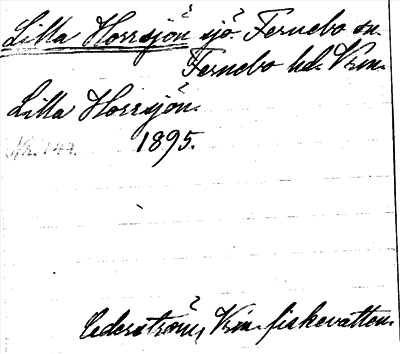 Lilla Horrsjön sjö. Fernebo sn.
Fernebo hd. Vrm.
Lilla Horrsjön.
Nr. 144. 1895.
Cederström, Vrm. fiskevatten.